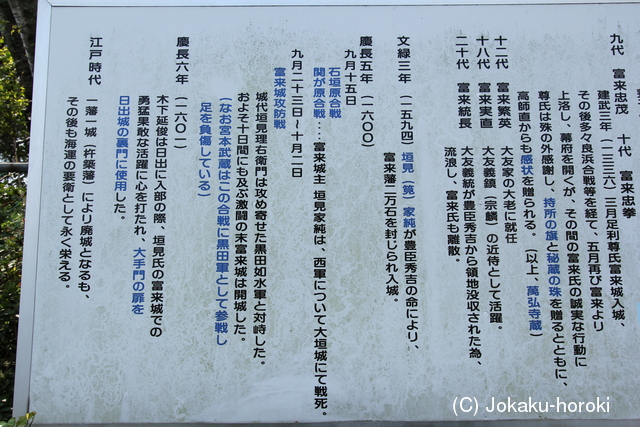 九代　富来忠茂　十代　富来忠拳
建武三年(一三三六)三月足利尊氏富来城入城、
その後多々良浜合戦等を経て、五月再び富来より
上洛し、幕府を開くが、その間の富来氏の誠実な行動に
尊氏は殊の外感謝し、持所の旗と秘蔵の珠を贈るとともに、
高師直からも感状を贈られる。(以上、萬弘寺蔵)
十二代　富来繁英　大友家の大老に就任
十八代　富来実直　大友義鎮(宗麟)の近侍として活躍。
二十代　富来統長　大友義統が豊臣秀吉から領地没収された為、
流浪し、富来氏も離散。
文禄三年(一五九四)垣見(筧)家純が豊臣秀吉の命により、
富来藩二万石を封じられ入城。
慶長五年(一六〇〇)
九月十五日
石垣原合戦
関が原合戦‥‥富来城主　垣見家純は、西軍について大垣城にて戦死。
九月二十三日〜十月二日
富来城攻防戦
城代垣見理右衛門は攻め寄せた黒田如水軍と対峙した。
およそ十日間にも及ぶ激闘の末富来城は開城した。
(なお宮本武蔵はこの合戦に黒田軍として参戦し
足を負傷している)
慶長六年(一六〇一)
木下延俊は日出に入部の際、垣見氏の富来城での
勇猛果敢な活躍に心を打たれ、大手門の扉を
日出城の裏門に使用した。
江戸時代　一藩一城(杵築藩)により廃城となるも、
その後も海運の要衛として永く栄える。
(C) Jokaku-horoki